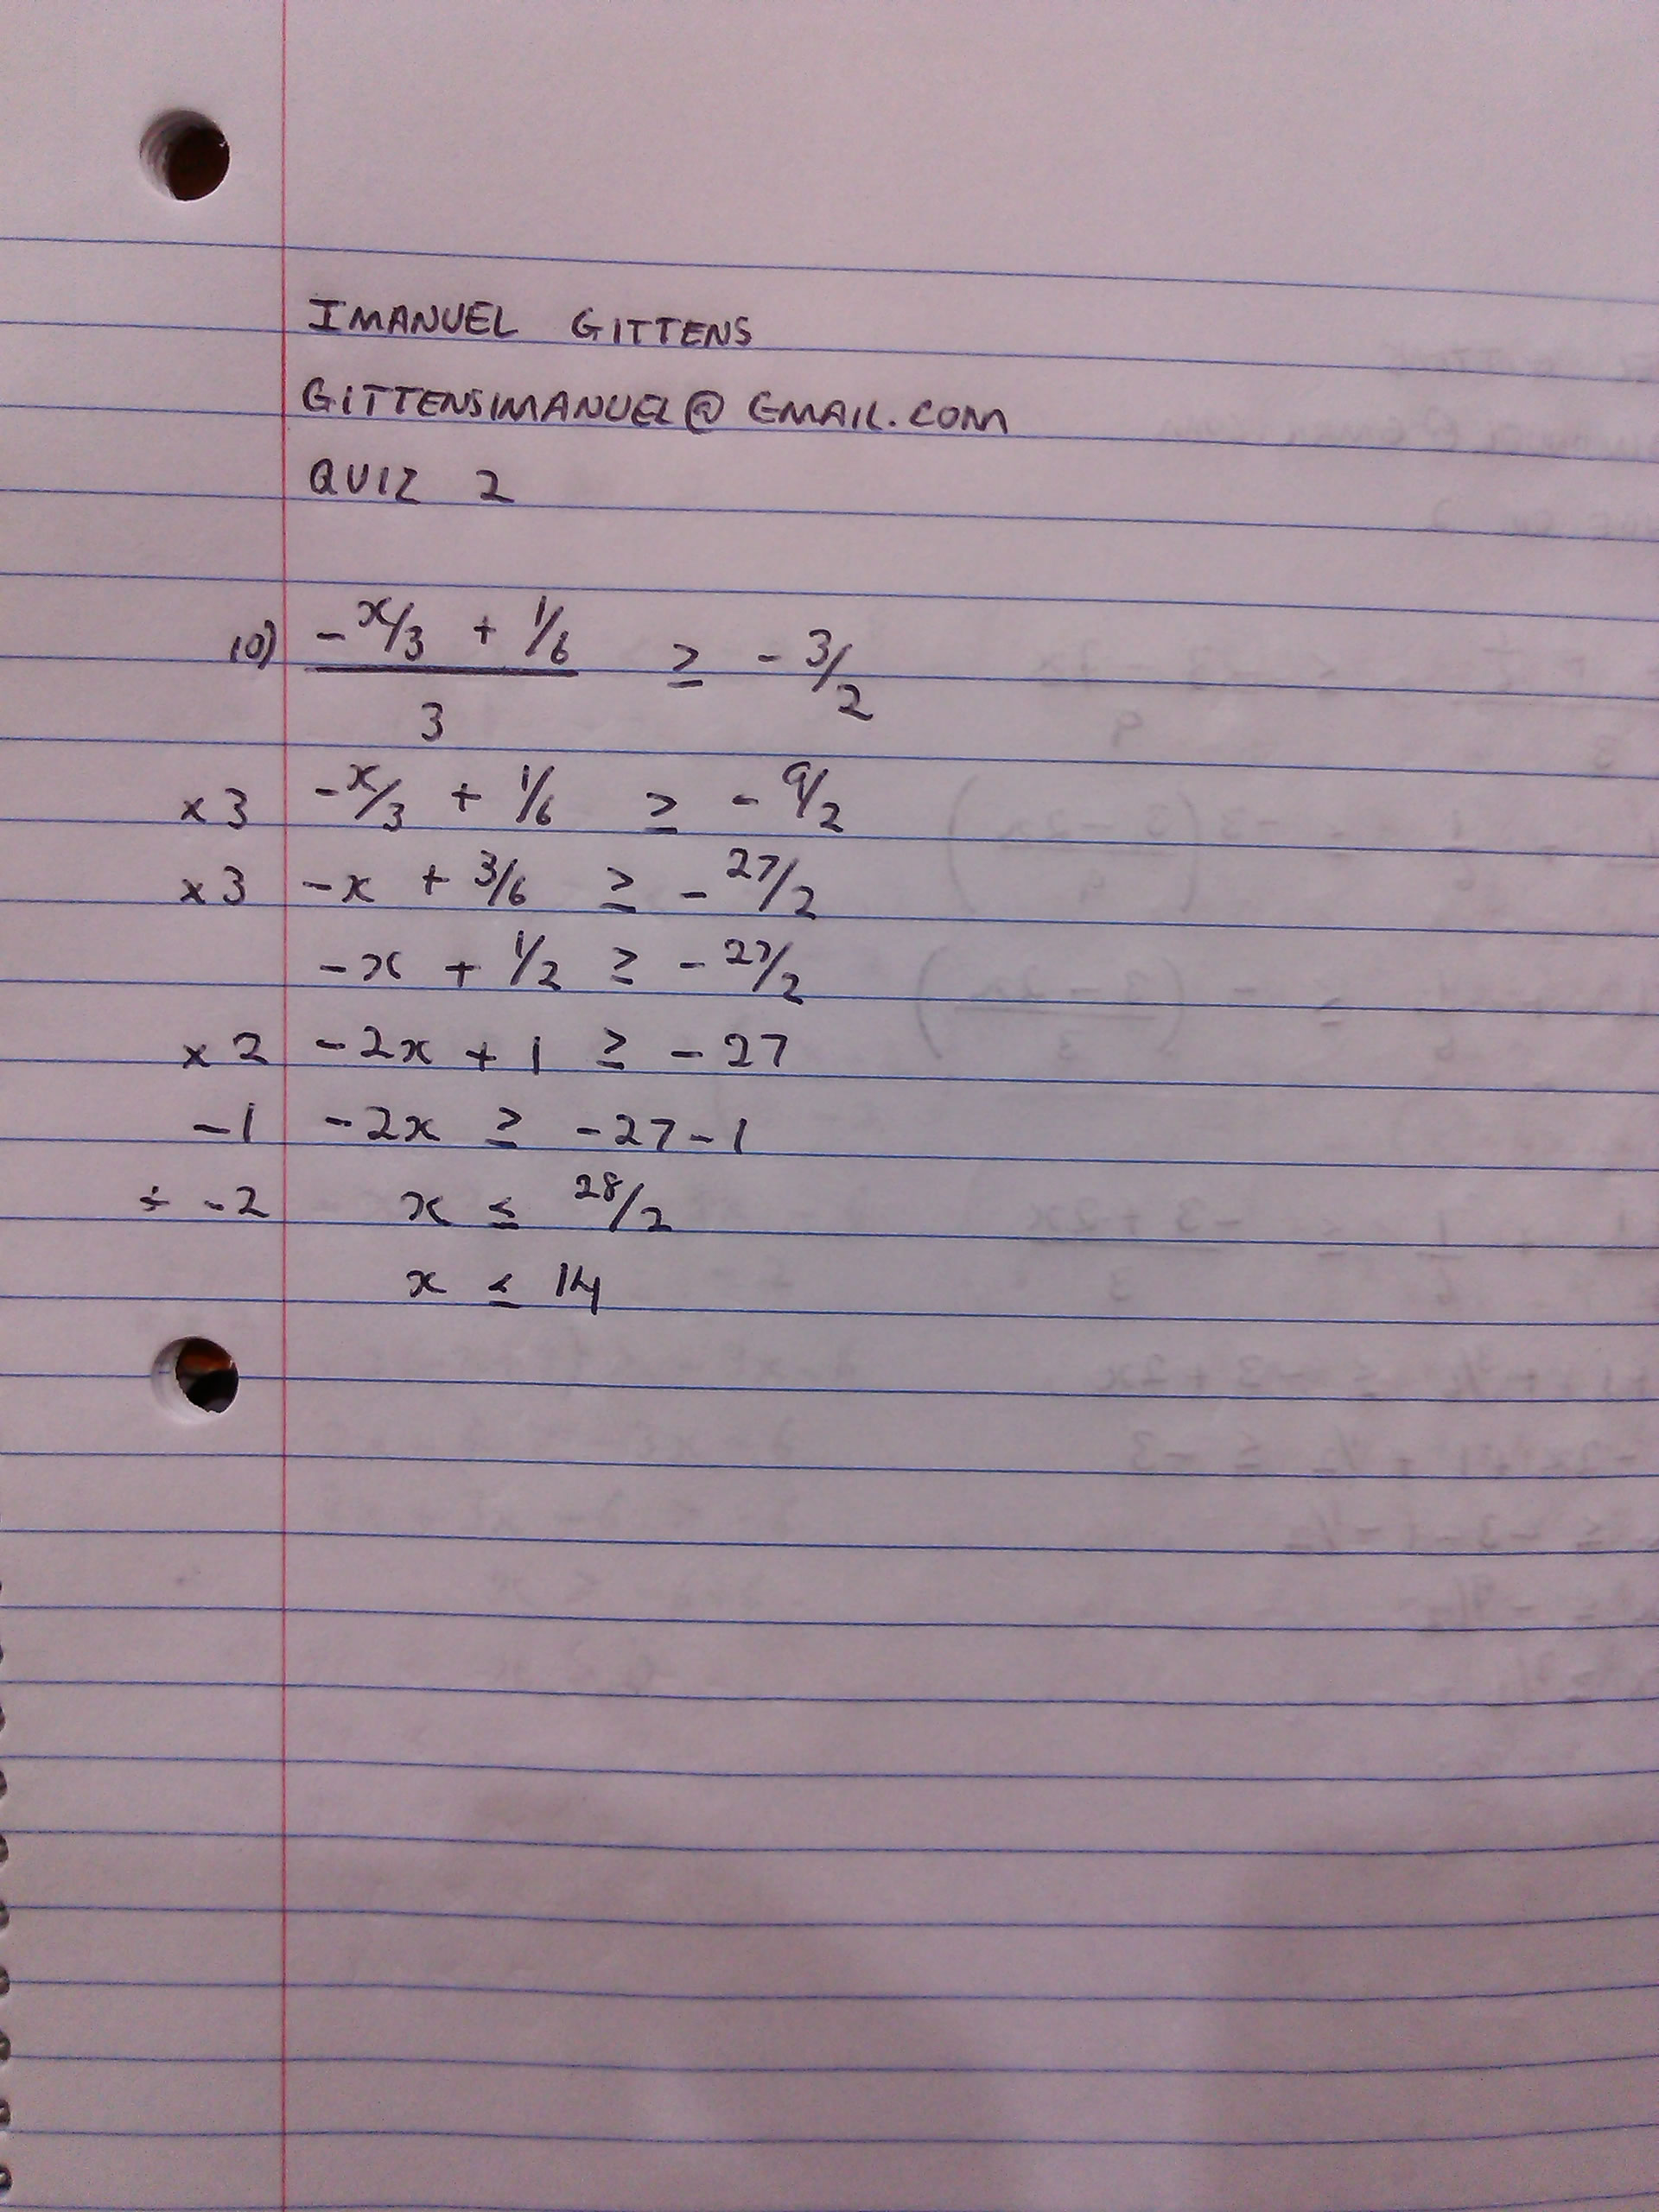 IMANUEL GITTENS
GITTENSIMANUEL@GMAIL.COM
QUIZ 2
10) -x/3 + 1/6 ≥ -3/2
3
x3 -x/3 + 1/6 ≥ -9/2
x3 -x + 3/6 ≥ -27/2
-x + 1/2 ≥ -27/2
x2 -2x + 1 ≥ -27
-1 -2x ≥ -27-1
÷ -2 x ≤ 28/2
x ≤ 14